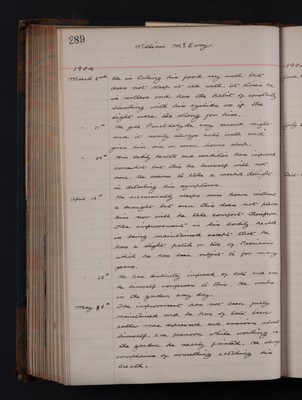 289
William McEvoy
1904
March 5th He is taking his food very well but
does not sleep at all well. At times he
is restless and has the habit of carefully
shading with his eyelids as if the
light were too strong for him.
" 11th He gets Paraldehyde every second night
and it nearly always acts well and
gives him six or seven hours sleep.
His bodily health and condition have improved
somewhat but this he himself will not
own. He seems to take a morbid delight
in detailing his symptoms.
April 10th He occasionally sleeps some hours without
a draught but even this does not please
him nor will he take comfort therefrom.
The improvement in his bodily health
is being maintained except that he
has a slight patch or two of Psoriasis
which he has been subject to for many
years.
He has distinctly improved of late and even
he himself confesses to this. He works
in the garden every day.
May The improvement has not been fully
maintained and he has of late been
rather more depressed and anxious about
himself. One forenoon while working in
the garden he nearly fainted. He always
complains of something catching his
breath.
190